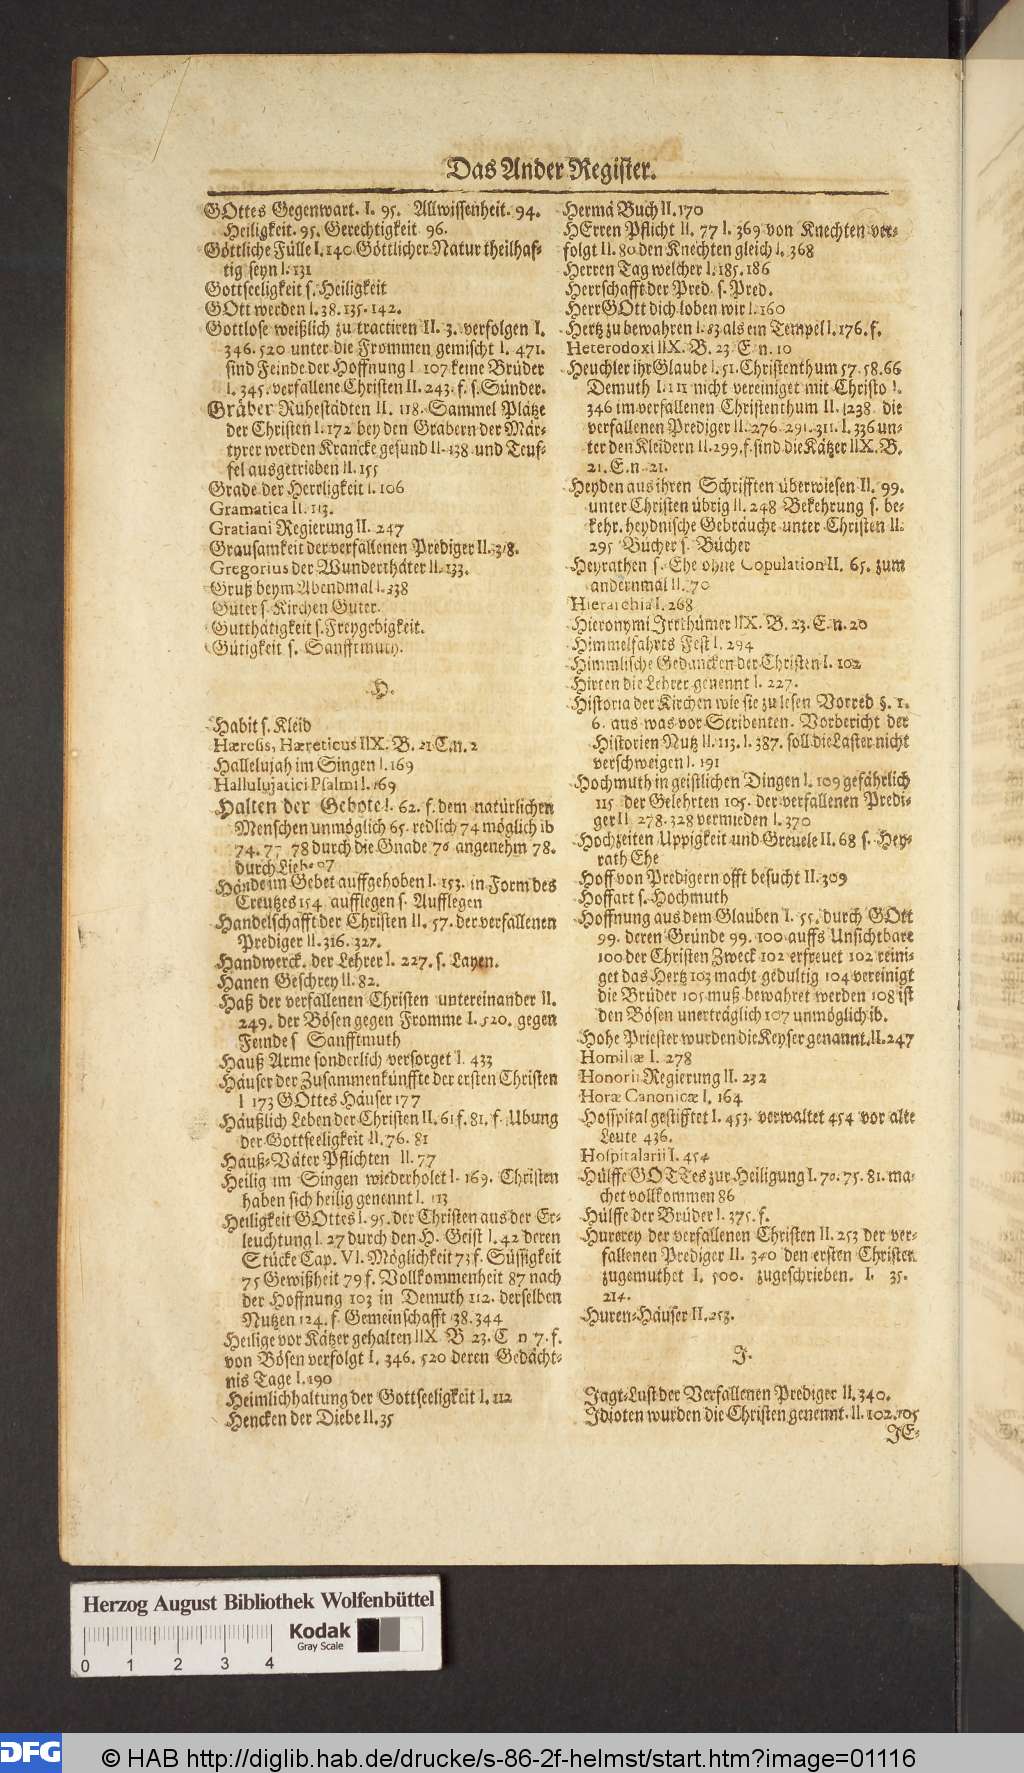 Das Ander Register.
GOttes Gegenwart. I. 95. Allwissenheit. 94.
Heiligkeit. 95. Gerechtigkeit 96.
Göttliche Fülle I. 140 Göttlicher Natur theilhaf-
tig seyn I. 131
Gottseeligkeit s. Heiligkeit
GOtt werden I. 38. 135. 142.
Gottlose weißlich zu tractiren II. 3. verfolgen I.
346. 520 unter die Frommen gemischt I. 471.
sind Feinde der Hoffnung I 107 keine Brüder
I. 345. verfallene Christen II. 243. f. s. Sünder.
Gräber Ruhestädten II. 118. Sammel Plätze
der Christen I. 172 bey den Gräbern der Mär-
tyrer werden Krancke gesund II. 138 und Teuf-
fel ausgetrieben II. 155
Grade der Herrligkeit I. 106
Gramatica II. 113.
Gratiani Regierung II. 247
Grausamkeit der verfallenen Prediger II. 318.
Gregorius der Wunderthäter II. 133.
Gruß beym Abendmal I. 338
Güter s. Kirchen Güter.
Gutthätigkeit s. Freygebigkeit.
Gütigkeit s. Sanfftmuth.
H.
Habit s. Kleid
Hæresis, Hæreticus IIX. B. 21 C. n. 2
Hallelujah im Singen I. 169
Hallulujatici Psalmi I. 169
Halten der Gebote I. 62. f. dem natürlichen
Menschen unmöglich 65. redlich 74 möglich ib
74. 77 78 durch die Gnade 76 angenehm 78.
durch Liebe 97
Hände im Gebet auffgehoben I. 153. in Form des
Creutzes 154 aufflegen s. Aufflegen
Handelschafft der Christen II. 57. der verfallenen
Prediger II. 316. 327.
Handwerck. der Lehrer I. 227. s. Layen.
Hanen Geschrey II. 82.
Haß der verfallenen Christen untereinander II.
249. der Bösen gegen Fromme I. 520. gegen
Feinde s Sanfftmuth
Hauß Arme sonderlich versorget I. 433
Häuser der Zusammenkünffte der ersten Christen
I 173 GOttes Häuser 177
Häußlich Leben der Christen II. 61 f. 81. f. Ubung
der Gottseeligkeit II. 76. 81
Hauß-Väter Pflichten II. 77
Heilig im Singen wiederholet I. 169. Christen
haben sich heilig genennt I. 113
Heiligkeit GOttes I. 95. der Christen aus der Er-
leuchtung I. 27 durch den H. Geist I. 42 deren
Stücke Cap. VI. Möglichkeit 73 f. Süssigkeit
75 Gewißheit 79 f. Vollkommenheit 87 nach
der Hoffnung 103 in Demuth 112. derselben
Nutzen 124. f. Gemeinschafft 138. 344
Heilige vor Kätzer gehalten IIX B 23. C n 7. f.
von Bösen verfolgt I. 346. 520 deren Gedächt-
nis Tage I. 190
Heimlichhaltung der Gottseeligkeit I. 112
Hencken der Diebe II. 35
Hermä Buch II. 170
HErren Pflicht II. 77 I. 369 von Knechten ver-
folgt II. 80 den Knechten gleich I. 368
Herren Tag welcher I. 185. 186
Herrschafft der Pred. s. Pred.
Herr GOtt dich loben wir I. 160
Hertz zu bewahren I. 83 als ein Tempel I. 176. f.
Heterodoxi IIX. B. 23 C n. 10
Heuchler ihr Glaube I. 51. Christenthum 57. 58. 66
Demuth I. 111 nicht vereiniget mit Christo I.
346 im verfallenen Christenthum II. 238 die
verfallenen Prediger II. 276 291. 311. I. 336 un-
ter den Kleidern II. 299. f. sind die Kätzer IIX. B.
21. C. n. 21.
Heyden aus ihren Schrifften überwiesen II. 99.
unter Christen übrig II. 248 Bekehrung s. be-
kehr. heydnische Gebräuche unter Christen II.
295 Bücher s. Bücher
Heyrathen s. Ehe ohne Copulation II. 65. zum
andernmal II. 70
Hierarchia I. 268
Hieronymi Irrthümer IIX. B. 23. C. n. 20
Himmelfahrts Fest I. 294
Himmlische Gedancken der Christen I. 102
Hirten die Lehrer genennt I. 227.
Historia der Kirchen wie sie zu lesen Vorred §. 1.
6. aus was vor Scribenten. Vorbericht der
Historien Nutz II. 113. I. 387. soll die Laster nicht
verschweigen I. 191
Hochmuth in geistlichen Dingen I. 109 gefährlich
115 der Gelehrten 105. der verfallenen Predi-
ger II 278. 328 vermieden I. 370
Hochzeiten Uppigkeit und Greuele II. 68 s. Hey-
rath Ehe
Hoff von Predigern offt besucht II. 309
Hoffart s. Hochmuth
Hoffnung aus dem Glauben I. 55. durch GOtt
99. deren Gründe 99. 100 auffs Unsichtbare
100 der Christen Zweck 102 erfreuet 102 reini-
get das Hertz 103 macht gedultig 104 vereinigt
die Brüder 105 muß bewahret werden 108 ist
den Bösen unerträglich 107 unmöglich ib.
Hohe Priester wurden die Keyser genannt. II. 247
Homiliæ I. 278
Honorii Regierung II. 232
Horæ Canonicæ I. 164
Hosspital gestifftet I. 453. verwaltet 454 vor alte
Leute 436.
Hospitalarii I. 454
Hülffe GOTTes zur Heiligung I. 70. 75. 81. ma-
chet vollkommen 86
Hülffe der Brüder I. 375. f.
Hurerey der verfallenen Christen II. 253 der ver-
fallenen Prediger II. 340 den ersten Christen
zugemuthet I. 500. zugeschrieben. I. 35.
214.
Huren-Häuser II. 253.
J.
Jagt-Lust der Verfallenen Prediger II. 340.
Idioten wurden die Christen genennt. II. 102. 105
JE-
Herzog August Bibliothek Wolfenbüttel
Kodak
Gray Scale
0 1 2 3 4
DFG
© HAB http://diglib.hab.de/drucke/s-86-2f-helmst/start.htm?image=01116